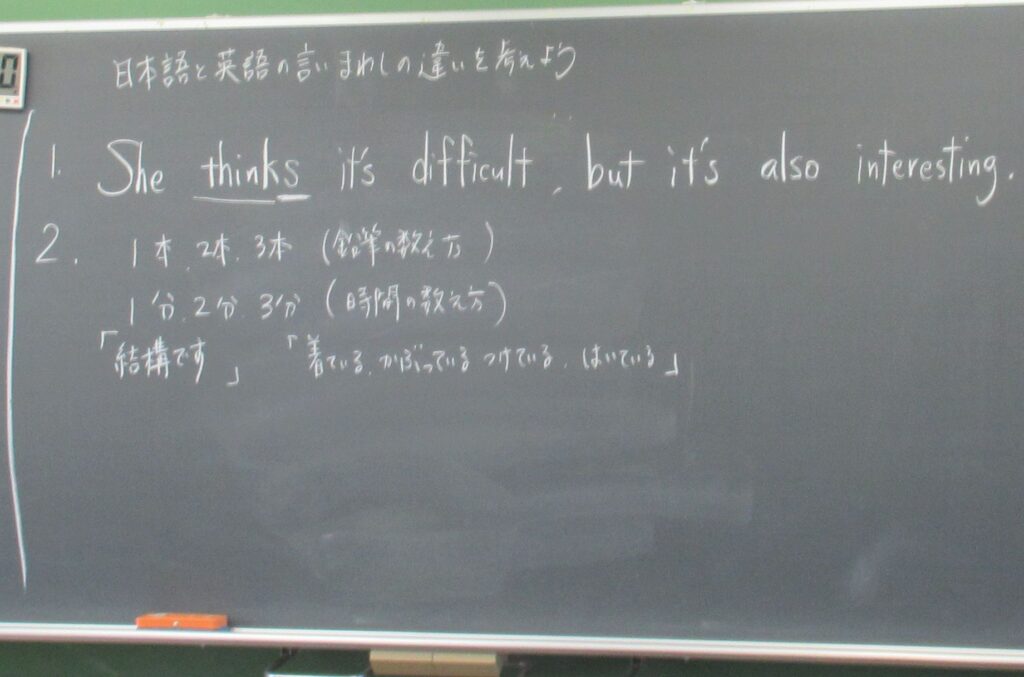 日本語と英語の言いまわしの違いを考えよう
1. She thinks it's difficult, but it's also interesting.
2. 1本、2本、3本 (鉛筆の数え方)
1分、2分、3分 (時間の数え方)
「結構です」 「着ている、かぶっている、つけている、はいている」